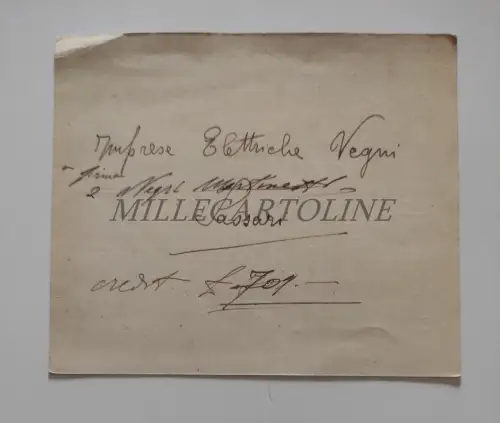 Imprese Elettriche Vegni
firma
e Negri
MILLECARTOLINE
Sassari
credit £. 701.—